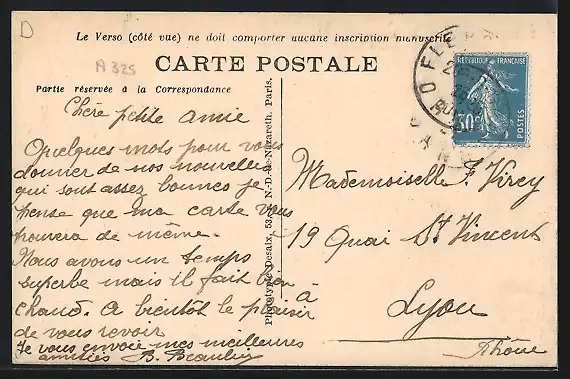 D
Le Verso (côté vue) ne doit comporter aucune inscription manuscrite
A 325
CARTE POSTALE
Partie réservée à la Correspondance
Chère petite amie
Quelques mots pour vous
donner de nos nouvelles
qui sont assez bonnes je
pense que ma carte vous
trouvera de même.
Nous avons un temps
superbe mais il fait bien
chaud. A bientôt le plaisir
de vous revoir
Je vous envoie mes meilleures
amitiés B. Beaulieu
Phototypie Desaix, 53, r. N.-D.-de-Nazareth, Paris.
REPUBLIQUE FRANÇAISE
50c
POSTES
Mademoiselle F. Virey
19 Quai St Vincent
à
Lyon
Rhône